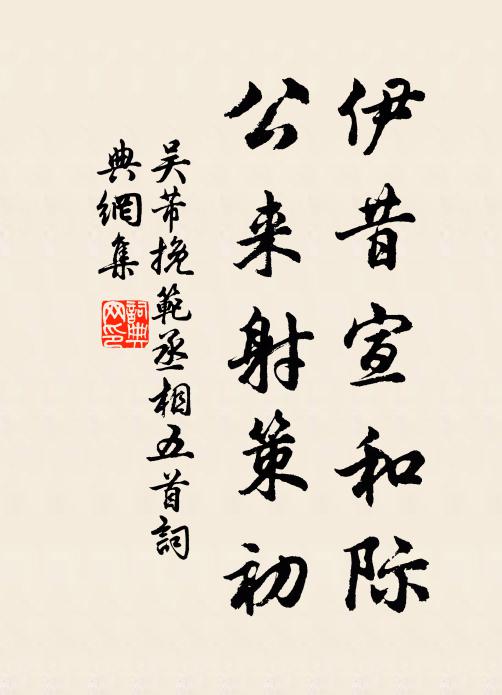 伊昔宣和际
公来射策初
吴芾挽範丞相五首詞
典網集
詞典
网印